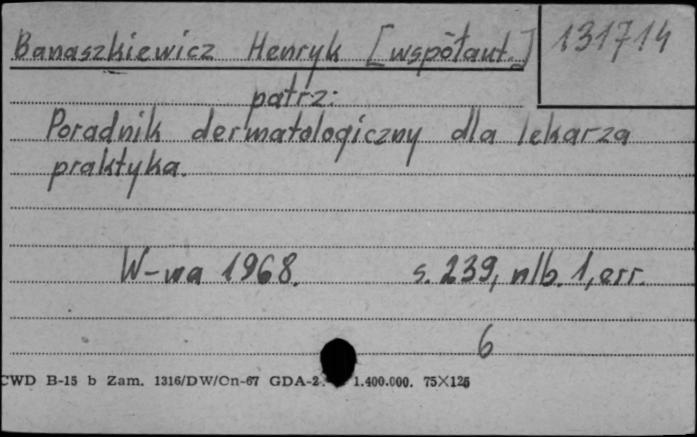 Banaszkiewicz Henryk [współaut.] 131714
patrz:
Poradnik dermatologiczny dla lekarza
praktyka.
W-wa 1968. s. 239, nlb. 1, err.
6
CWD B-15 b Zam. 1316/DW/On-67 GDA-2. 1.400.000. 75×125